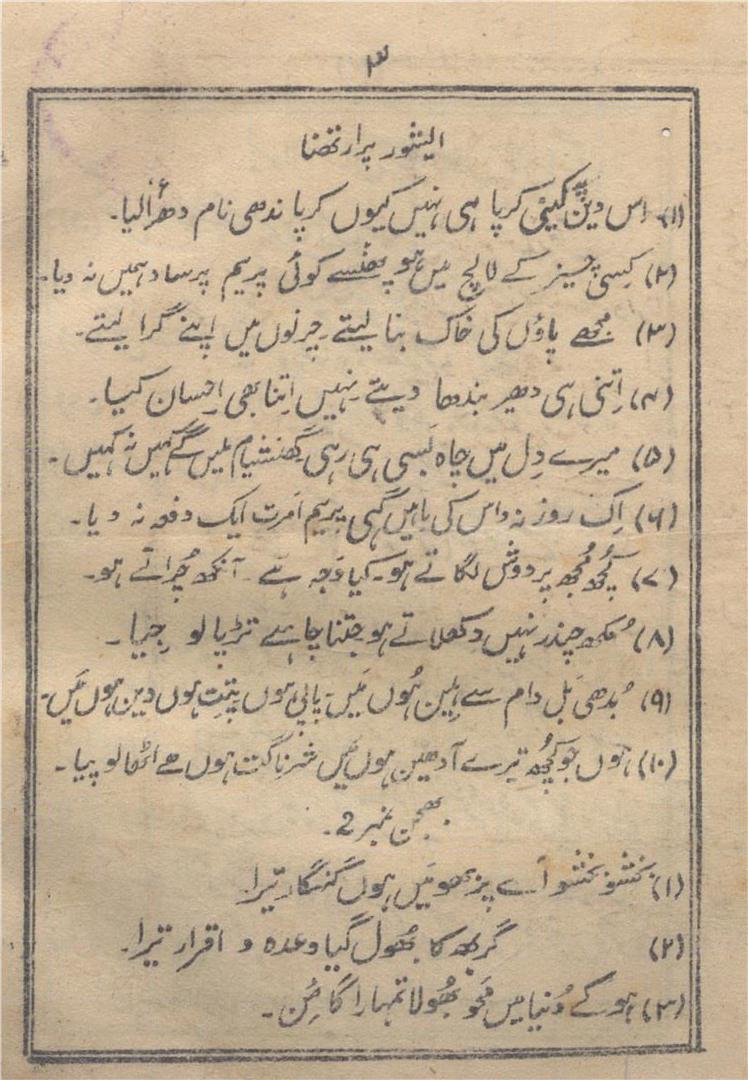 ۳
ایشور پرارتھنا
(۱) اس دین پہ کیئی کرپا ہی نہیں کیوں کرپا ندھی نام دھرا لیا۔
(۲) کسی چیز کے لالچ میں ہو پھنسے کوئی پریم پرساد ہمیں نہ دیا۔
(۳) مجھے پاؤں کی خاک بنا لیتے چرنوں میں اپنے گرا لیتے۔
(۴) اِتنی ہی دھیر بندھا دیتے نہیں اِتنا بھی احسان کیا۔
(۵) میرے دِل میں چاہ بسی ہی رہی گھنشیام ملیں گے کہیں نہ کہیں۔
(۶) اِک روز نہ داس کی باہیں گہی پریم اَمرت ایک دفعہ نہ دیا۔
(۷) کچھ مُجھ پر دوش لگاتے ہو۔ کیا وَجہ ہے۔ آنکھ چُراتے ہو۔
(۸) مُکھ چندر نہیں دکھلاتے ہو جتنا چاہے تڑپا لو جیا۔
(۹) بُدھی بَل دام سے ہین ہُوں مَیں۔ پاپی ہوں پتِت ہوں دین ہوں مَیں۔
(۱۰) ہوں جو کُچھ تیرے آدھین ہوں مَیں شرناگت ہوں ہے اٹھا لو پیا۔
بھجن نمبر 2۔
(۱) بخشو بخشو اَے پربھو مَیں ہوں گنہگار تیرا
(۲) گربھ کا بھُول گیا وعدہ و اقرار تیرا۔
(۳) ہو کے دُنیا میں محو بھُولا تمہارا گائن۔